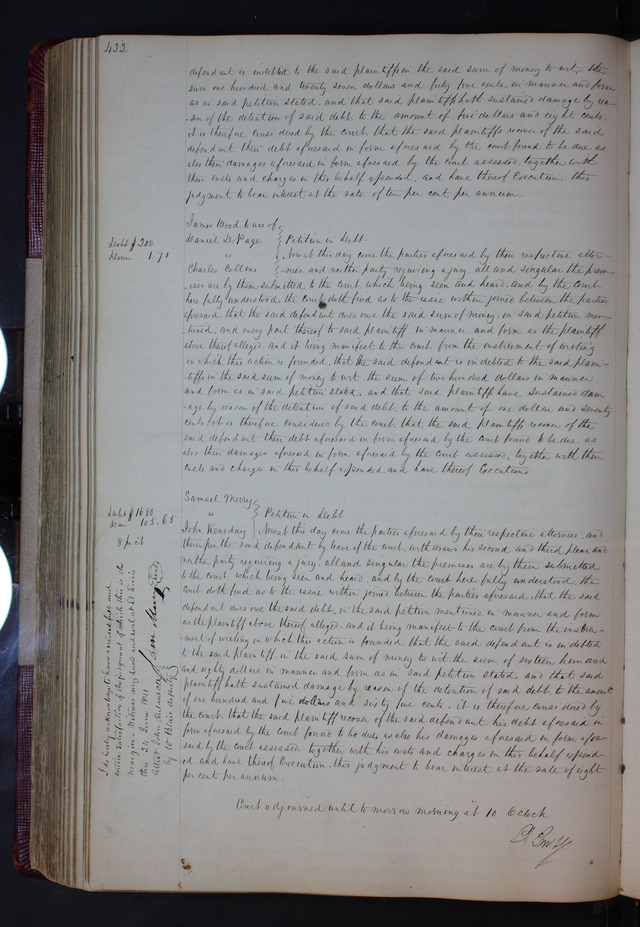 422
defendant is indebted to the said plaintiffs in the said sum of money to wit, the
sum one hundred and twenty seven dollars and forty five cents, in manner and form
as in said petition stated, and that said plaintiff hath sustained damage by rea-
son of the detention of said debt, to the amount of five dollars and eight cents,
it is therefore considered by the court, that the said plaintiffs recover of the said
defendant their debt aforesaid in form aforesaid by the court found to be due as
also their damages aforesaid in form aforesaid by the court assessed, together with
their costs and charges in this behalf expended, and have thereof Execution, this
judgment to bear interest at the rate of ten per cent per annum.
James Wood to use of
Daniel D. Page } Petition in Debt
Debt $ 200
" } Now at this day come the parties aforesaid by their respective attor-
Dam 1.70
Charles Collins } nies, and neither party requiring a jury, all and singular the prem-
ises are by them submitted to the court which being seen and heard, and by the court
here fully understood the court doth find as to the issue within joined between the parties
aforesaid that the said defendant does owe the said sum of money, in said petition men-
tioned, and every part thereof to said plaintiff in manner and form as the plaintiff
above thereof alleged, and it being manifest to the court from the instrument of writing
on which this action is founded, that the said defendant is indebted to the said plain-
tiffs in the said sum of money to wit the sum of two hundred dollars in manner
and form as in said petition stated, and that said plaintiff have sustained dam-
age by reason of the detention of said debt, to the amount of one dollar and seventy
cents, it is therefore considered by the court that the said plaintiffs recover of the
said defendant their debt aforesaid in form aforesaid by the court found to be due as
also their damages aforesaid in form aforesaid by the court assessed, together with their
costs and charges in this behalf expended and have thereof Execution
Samuel Merry
Debt $ 1680
" } Petition in Debt
Dam 105.65
John } Now at this day come the parties aforesaid by their respective attornies, and
8 pr ct
thereupon the said defendant by leave of the court, withdraws his second and third pleas, and
neither party requiring a jury, all and singular the premises are by them submitted
to the court which being seen and heard, and by the court here fully understood, the
court doth find as to the issue within joined between the parties aforesaid, that the said
defendant does owe the said debt, in the said petition mentioned, in manner and form
as the plaintiff above thereof alleged, and it being manifest to the court from the instru-
ment of writing on which this action is founded that the said defendant is indebted
to the said plaintiff, in the said sum of money to wit, the sum of sixteen hundred
and eighty dollars in manner and form as in said petition stated, and that said
plaintiff hath sustained damage by reason of the detention of said debt to the amount
of one hundred and five dollars and sixty five cents, it is therefore considered by
the court, that the said plaintiff recover of the said defendant, his debt aforesaid in
form aforesaid by the court found to be due, as also his damages aforesaid in form afore-
said by the court assessed, together with his costs and charges in this behalf expend-
ed, and have thereof Execution, this judgment to bear interest at the rate of eight
per cent per annum.
I do hereby acknowledge to have received full and
entire satisfaction of the judgment of which this is the
margin. Witness my hand and seal at St Louis
this
Saml Merry {Seal}
Attest John
by deputy
Court adjourned until to morrow morning at 10 Oclock